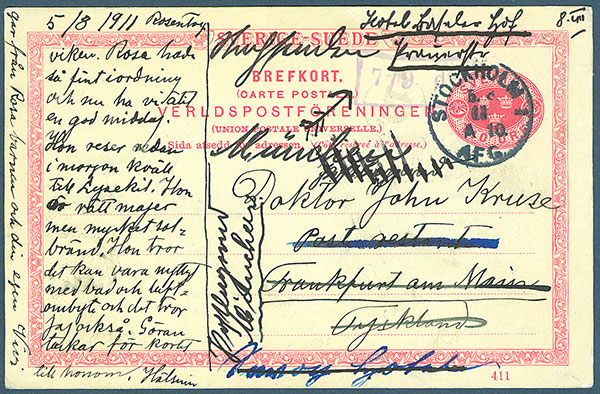 5/8 1911 Rosentorp
viken. Rosa hade
så fint i ordning
och nu ha vi ätit
en god middag.
Hon reser redan
i morgon kväll
till Lysekil. Hon
är rätt mager
men mycket sol-
bränd. Hon tror
det kan vara nyttigt
med bad och luft-
ombyte och det tror
jag också. Göran
tackar för kortet
till honom. Hälsnin
gar från Rosa barnen och din egen
Hotel Baseler Hof
8.VIII
SVERIGE-SUÈDE
779
BREFKORT.
(CARTE POSTALE)
VERLDSPOSTFÖRENINGEN
(UNION POSTALE UNIVERSELLE)
Sida afsedd för adressen. (Côté réservé à l'adresse.)
STOCKHOLM 1
11
AFG.
München
Doktor John Kruse
Post restant
Frankfurt am Main
Tyskland
München
411